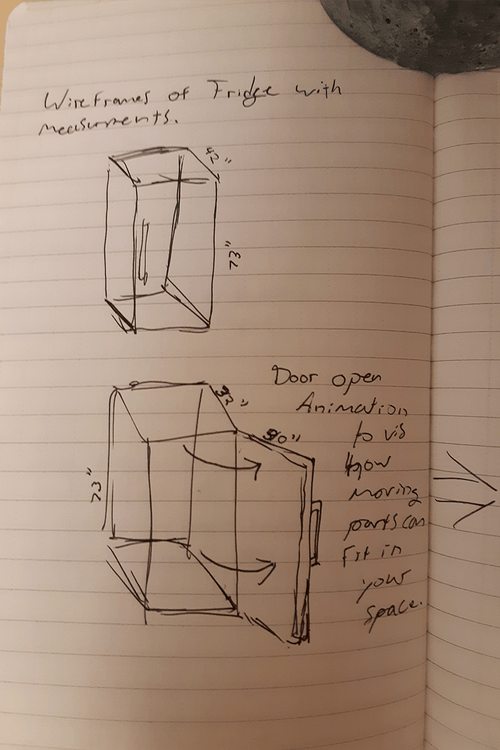 Wireframes of Fridge with
measurments.
42"
73"
Door open
Animation
to vis
how
moving
parts can
fit in
your
space.
73"